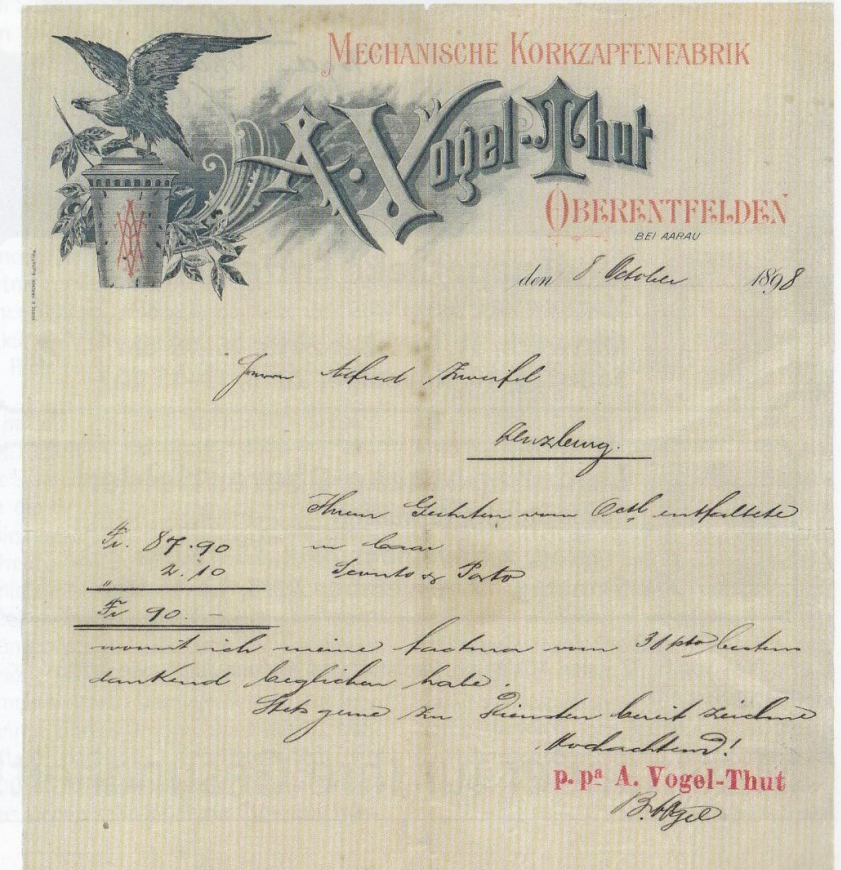 MECHANISCHE KORKZAPFENFABRIK
A. Vogel-Thut
OBERENTFELDEN
BEI AARAU
den 8 October 1898
Herrn Alfred Zweifel
Lenzburg.
Ihrem Geehrten vom enthaltete
Fr. 87.90 in baar
" 2.10 Sconto & Porto
Fr 90.-
womit ich meine Factura vom 30 bestens
dankend beglichen habe.
Stets gerne zu Diensten bereit zeichne
Hochachtend!
p. pa A. Vogel-Thut
B. Vogel